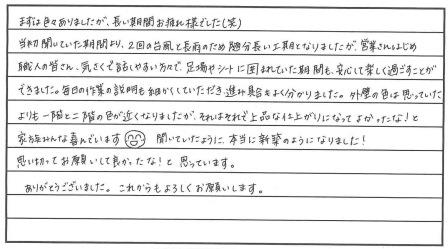 まずは色々ありましたが、長い期間お疲れ様でした(笑)
当初聞いていた期間より、2回の台風と長雨のため随分長い工期となりましたが、営業さんはじめ
職人の皆さん、気さくで話しやすい方で、足場やシートに囲まれていた期間も、安心して楽しく過ごすことが
できました。毎日の作業の説明も細かくしていただき、進み具合もよく分かりました。外壁の色は思っていた
よりも一階と二階の色が近くなりましたが、それはそれで上品な仕上がりになってよかったな!と
家族みんな喜んでいます 聞いていたように、本当に新築のようになりました!
思い切ってお願いして良かったな!と思っています。
ありがとうございました。これからもよろしくお願いします。